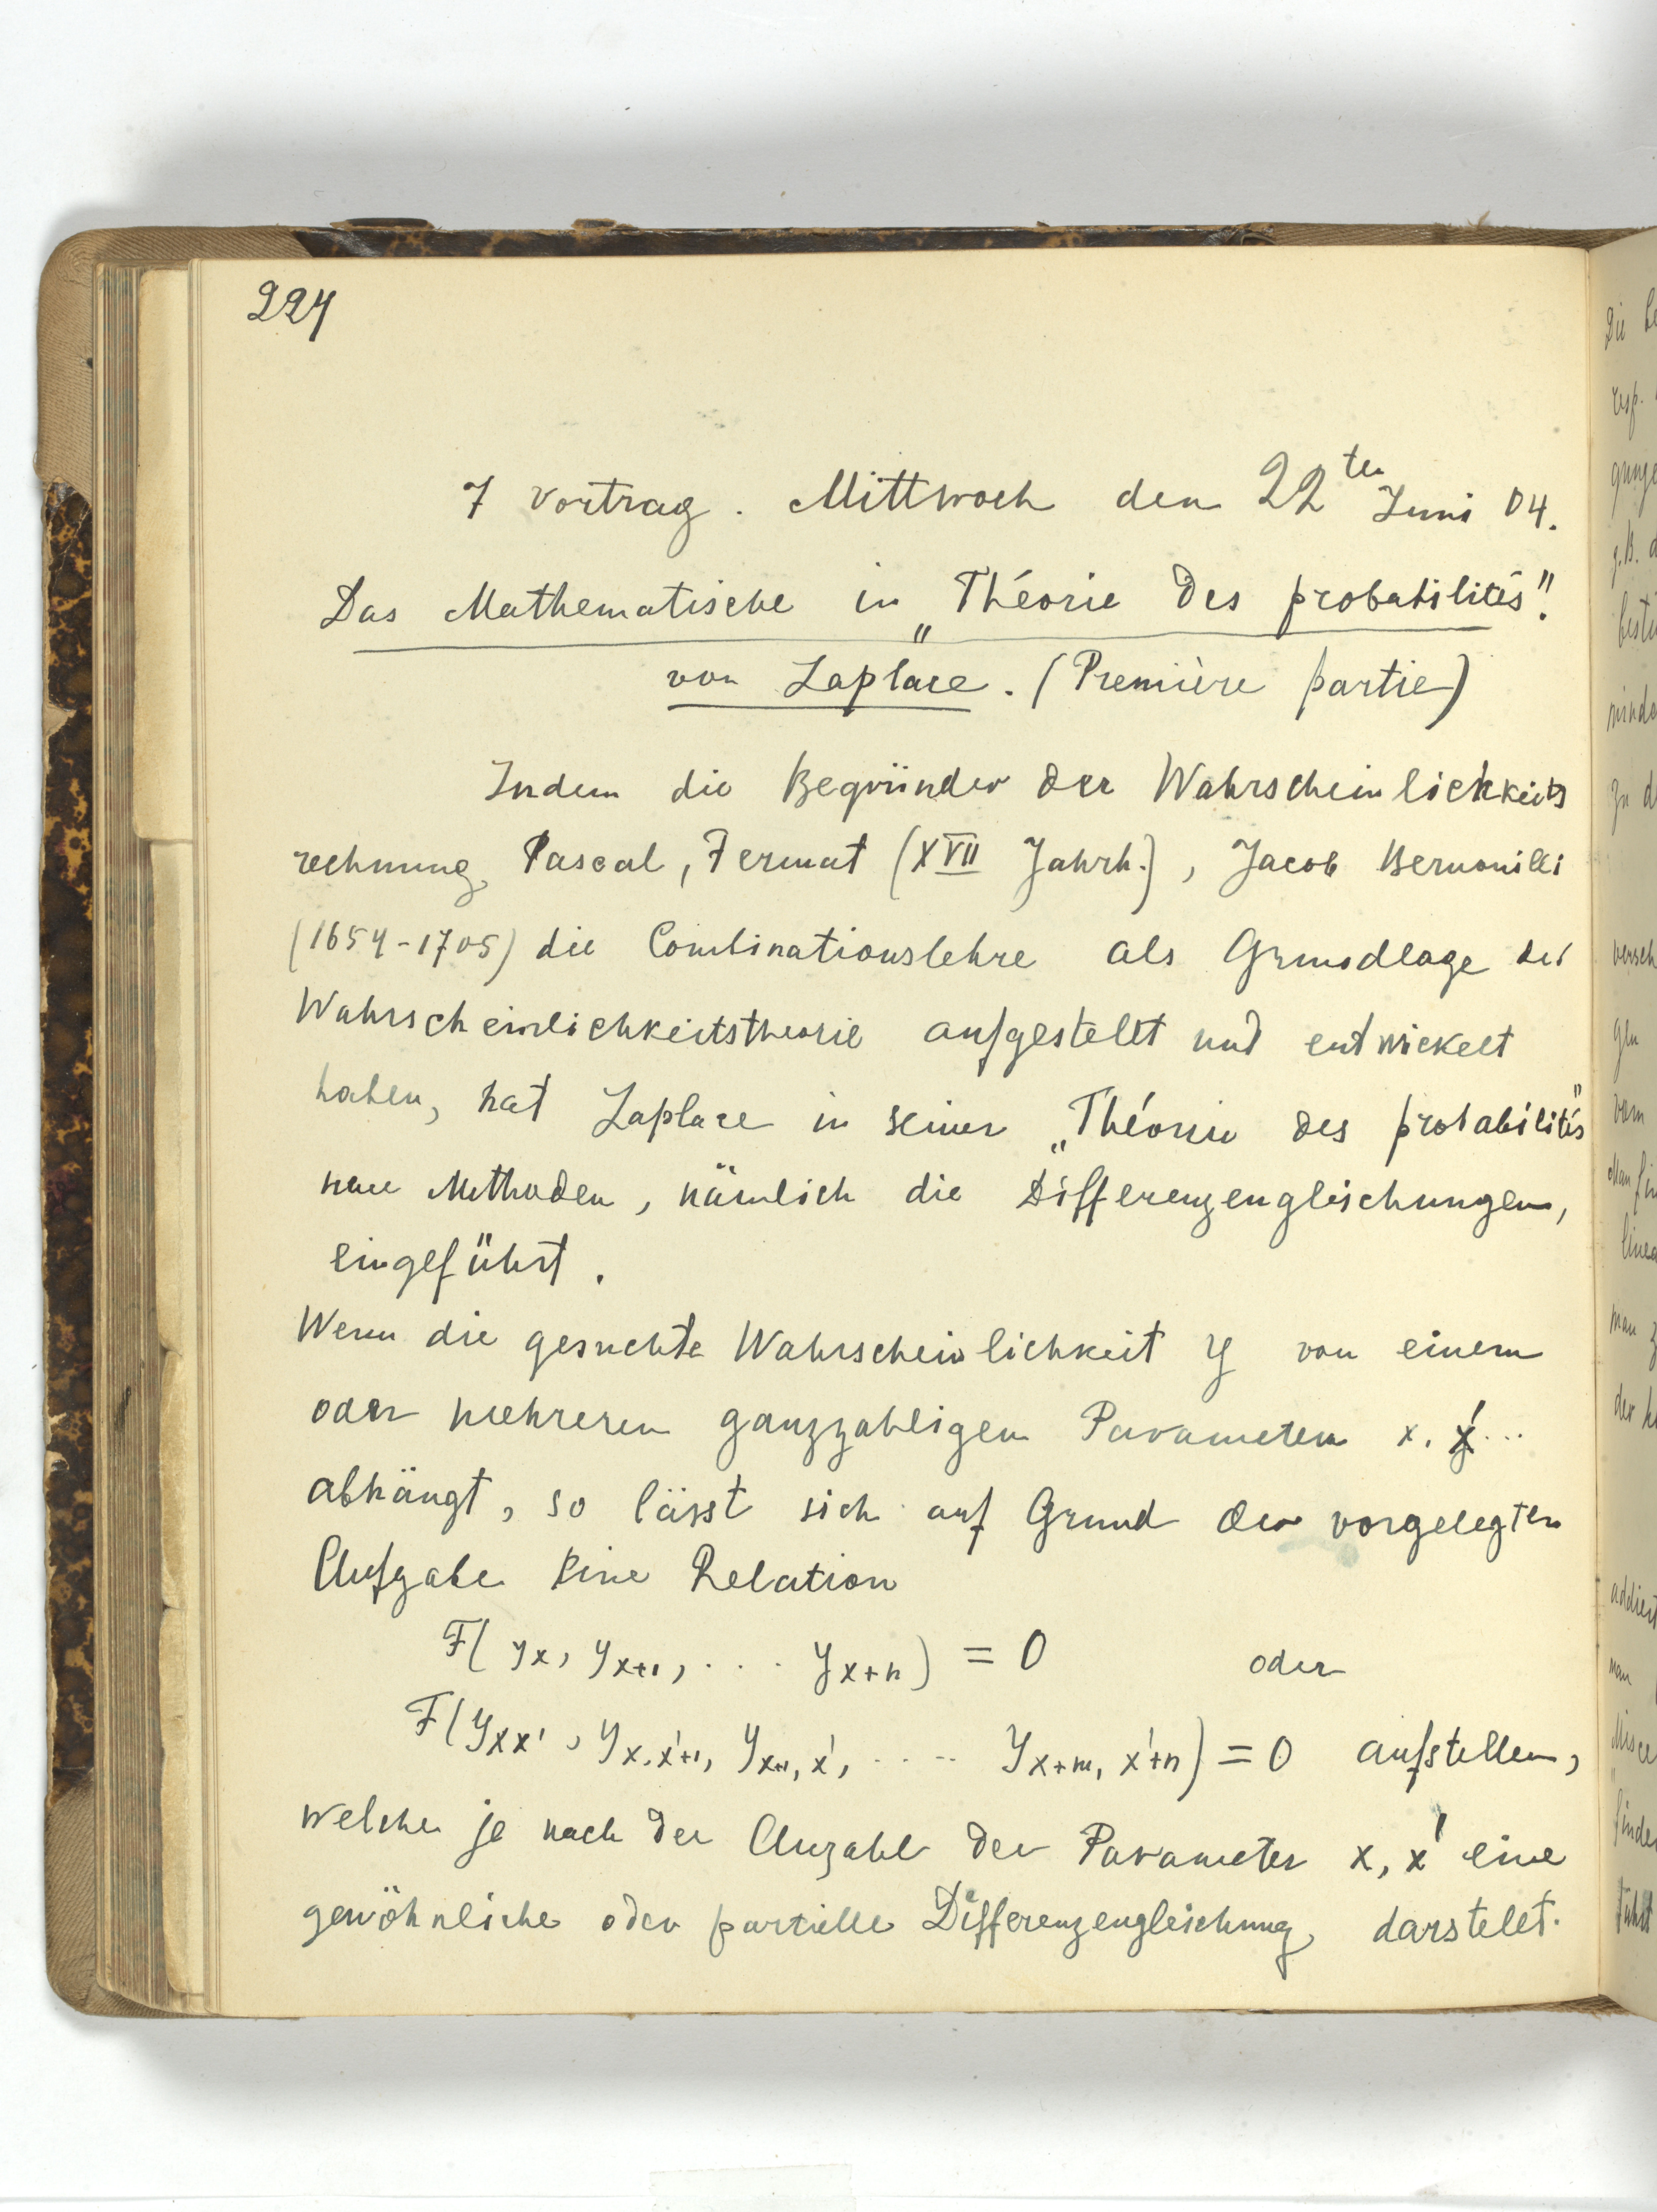 224
7 Vortrag. Mittwoch den 22ten Juni 04.
Das Mathematische in „Théorie des probabilités".
von Laplace. (Première partie)
Indem die Begründer der Wahrscheinlichkeits
rechnung Pascal, Fermat (XVII Jahrh.), Jacob Bernouilli
(1654-1705) die Combinationslehre als Grundlage der
Wahrscheinlichkeitstheorie aufgestellt und entwickelt
haben, hat Laplace in seiner „Théorie des probabilités"
neue Methoden, nämlich die Differenzengleichungen,
eingeführt.
Wenn die gesuchte Wahrscheinlichkeit y von einem
oder mehreren ganzzahligen Parametern x, x'...
abhängt, so lässt sich auf Grund der vorgelegten
Aufgabe eine Relation
F(y_x, y_{x+1}, .... y_{x+n}) = 0 oder
F(y_{xx'}, y_{x,x'+1}, y_{x+1,x'}, ..... y_{x+m, x'+n}) = 0 aufstellen,
welche je nach der Anzahl der Parameter x, x' eine
gewöhnliche oder partielle Differenzengleichung darstellt.
Die
resp.
z.B.
zu
vom
man